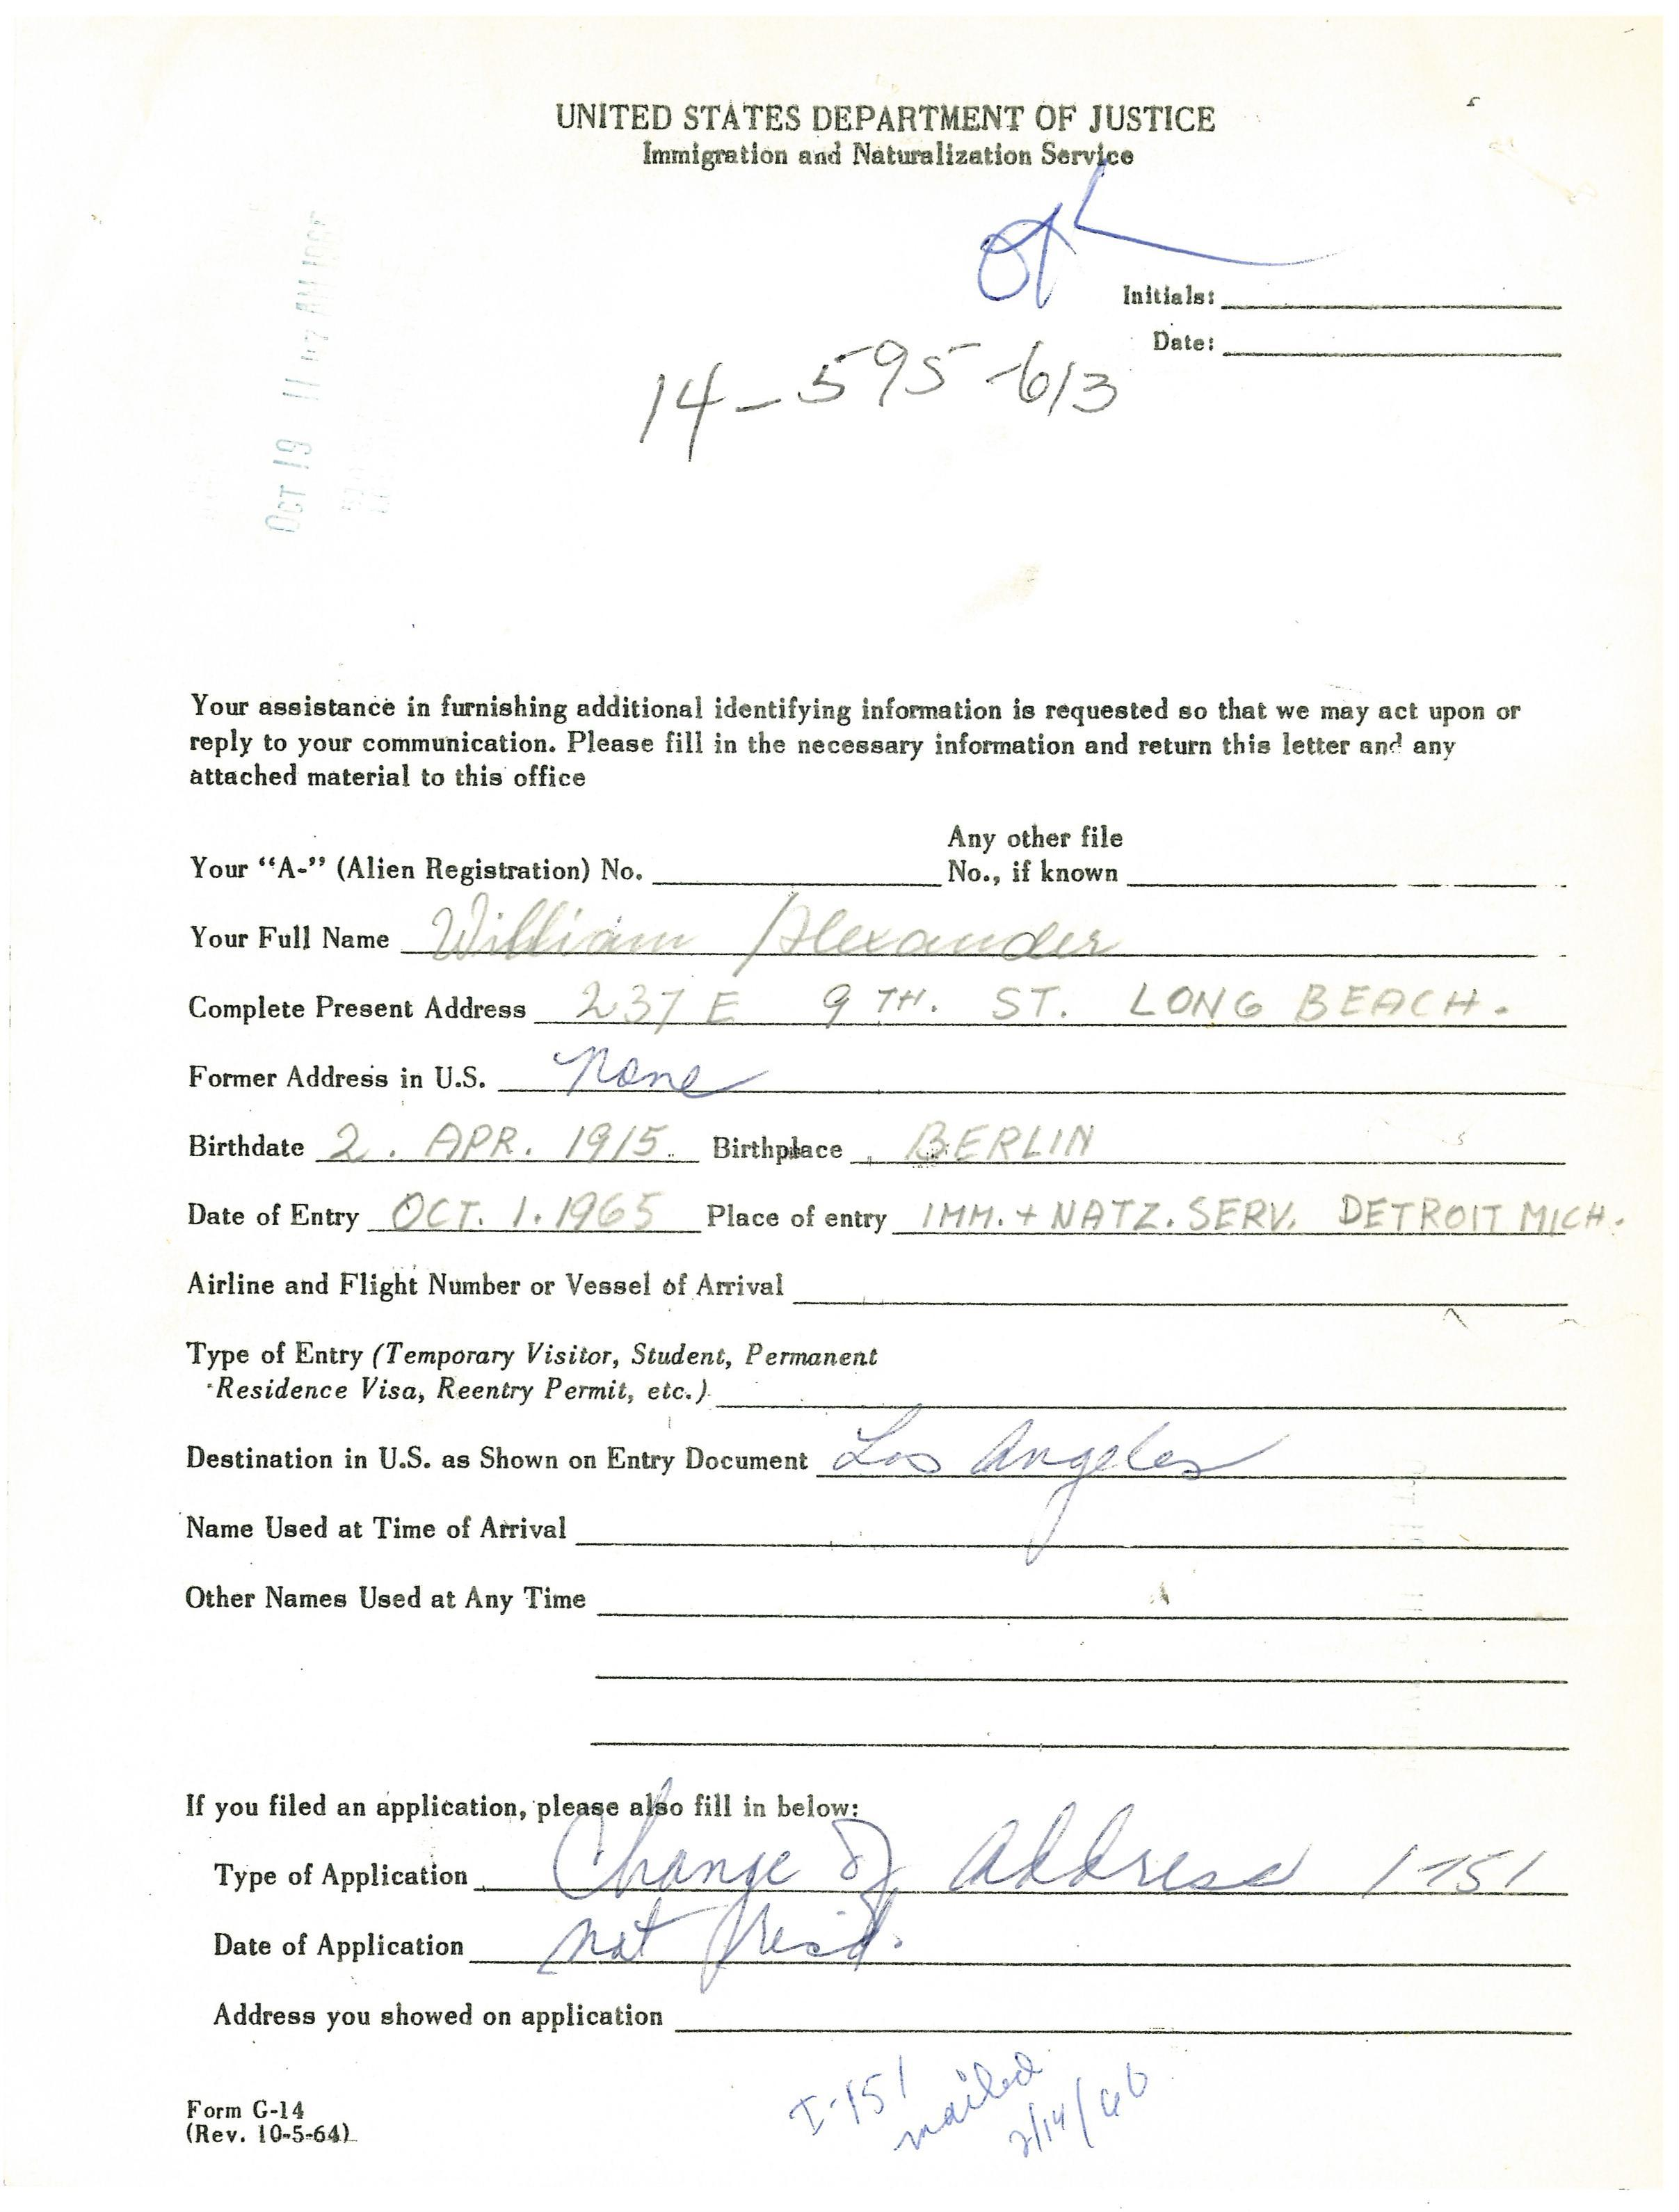 UNITED STATES DEPARTMENT OF JUSTICE
Immigration and Naturalization Service
Initials:
Date:
14-595-613
OCT 19 11 47 AM
Your assistance in furnishing additional identifying information is requested so that we may act upon or
reply to your communication. Please fill in the necessary information and return this letter and any
attached material to this office
Any other file
Your "A-" (Alien Registration) No. No., if known
Your Full Name William Alexander
Complete Present Address 237 E 9TH. ST. LONG BEACH.
Former Address in U.S. None
Birthdate 2. APR. 1915. Birthplace BERLIN
Date of Entry OCT. 1. 1965 Place of entry IMM. + NATZ. SERV. DETROIT MICH.
Airline and Flight Number or Vessel of Arrival
Type of Entry (Temporary Visitor, Student, Permanent
Residence Visa, Reentry Permit, etc.)
Destination in U.S. as Shown on Entry Document Los Angeles
Name Used at Time of Arrival
Other Names Used at Any Time
If you filed an application, please also fill in below:
Type of Application Change of Address 1-151
Date of Application not
Address you showed on application
I-151
mailed
2/14/66
Form G-14
(Rev. 10-5-64)